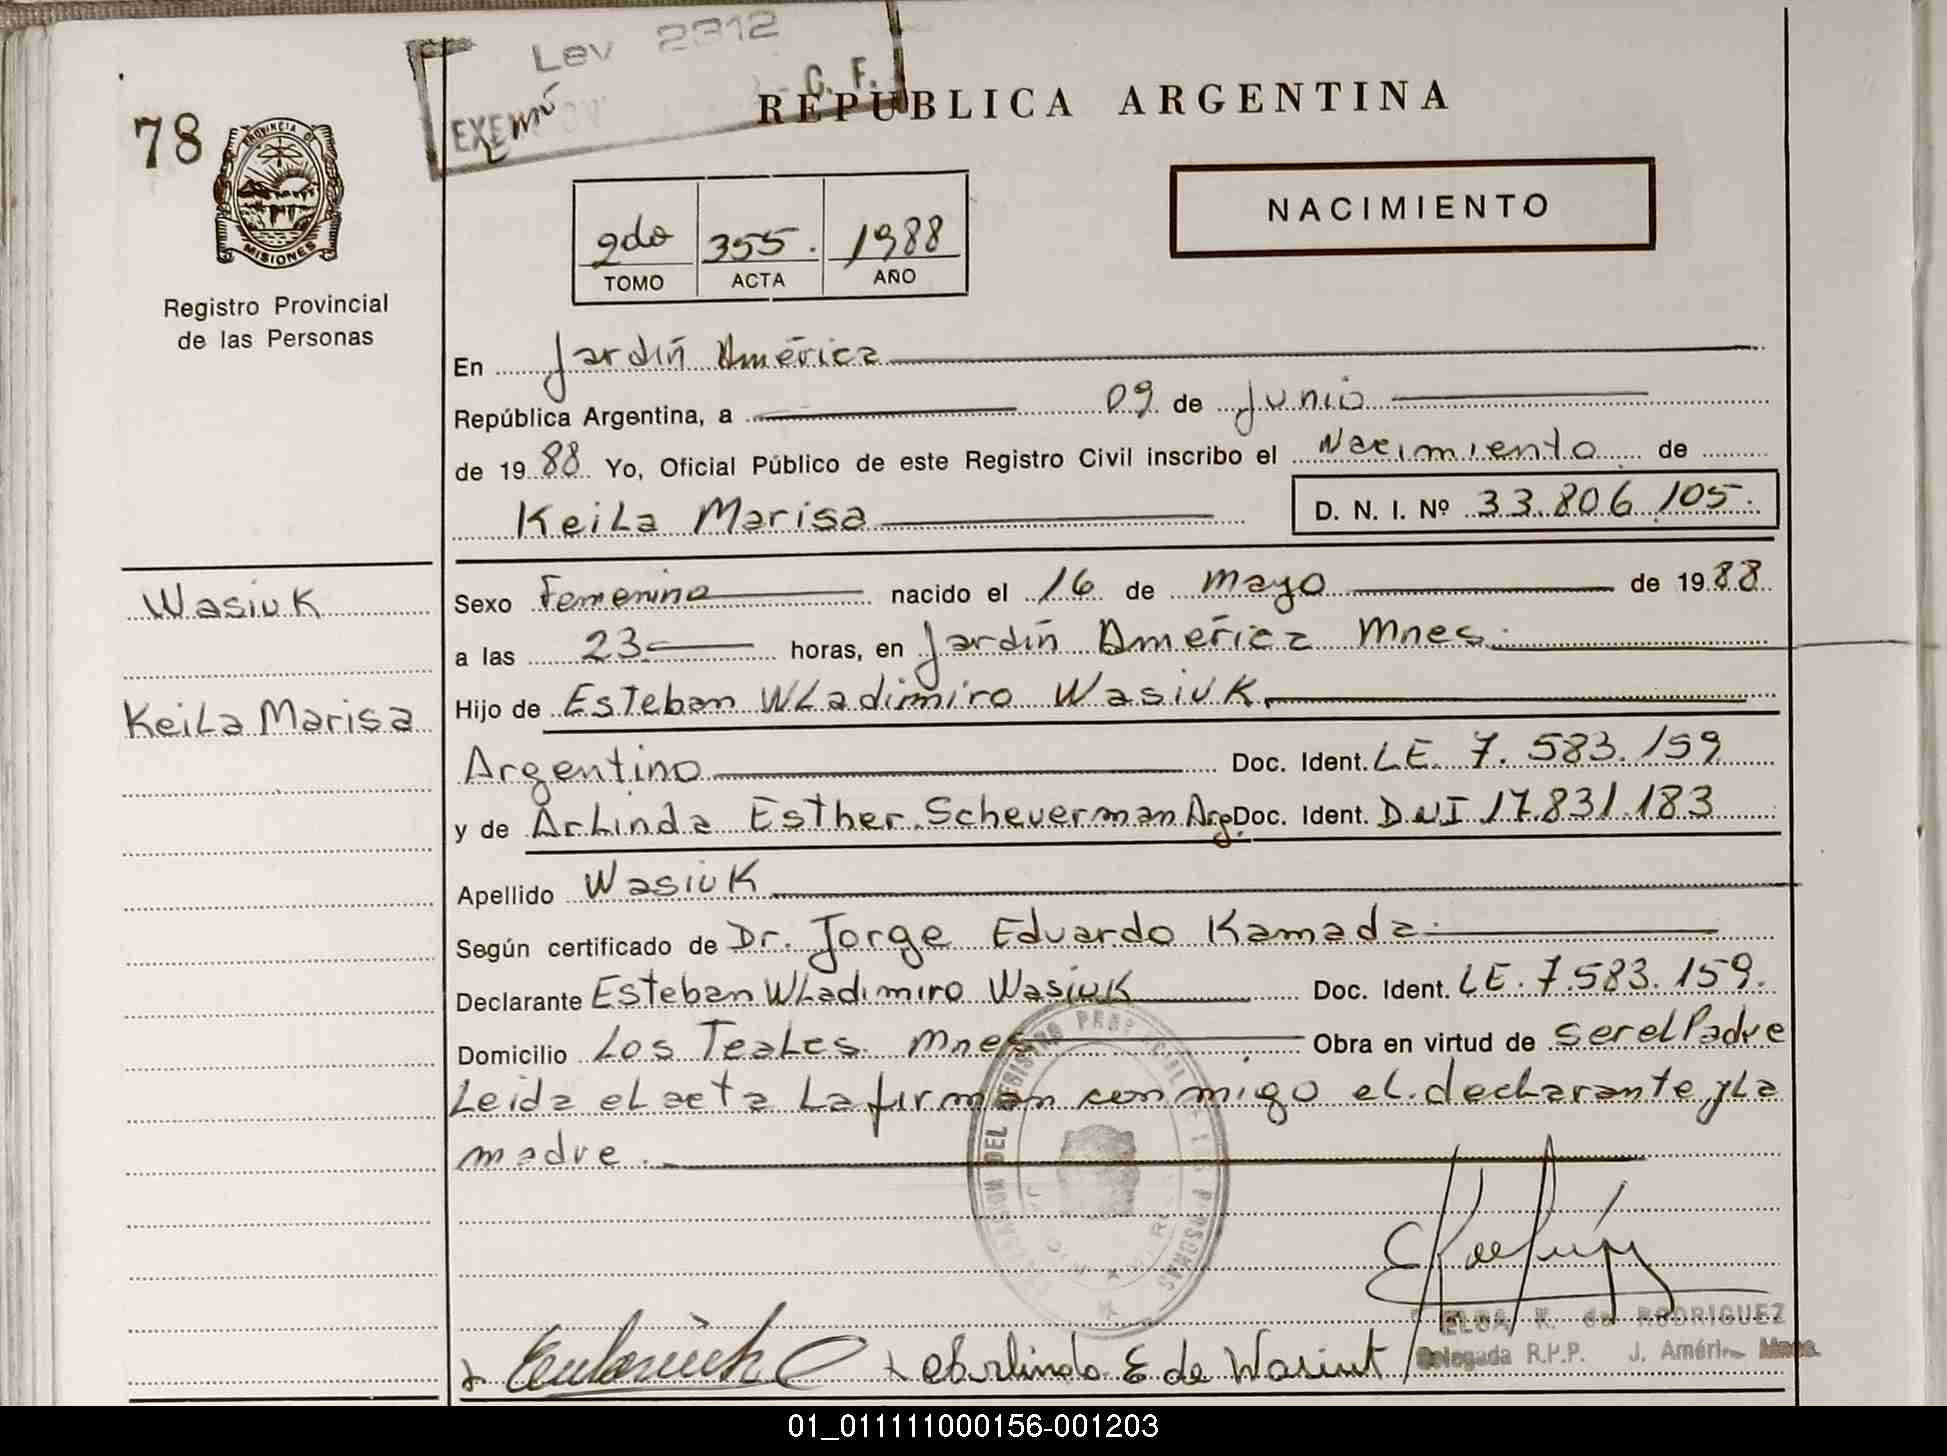 Ley 2312
G. F.
78
REPUBLICA ARGENTINA
PROVINCIA DE
MISIONES
NACIMIENTO
2do 355. 1988
TOMO ACTA AÑO
Registro Provincial
de las Personas
En Jardín América
República Argentina, a 09 de Junio
de 1988 Yo, Oficial Público de este Registro Civil inscribo el Nacimiento de
Keila Marisa D. N. I. Nº 33.806.105.
Wasiuk
Sexo Femenino nacido el 16 de mayo de 1988
a las 23 horas, en Jardín América Mnes.
Keila Marisa
Hijo de Esteban Wladimiro Wasiuk
Argentino Doc. Ident. LE 7.583.159
y de Arlinda Esther Scheuerman Arg. Doc. Ident. DNI 17.831.183
Apellido Wasiuk
Según certificado de Dr. Jorge Eduardo Kamada
Declarante Esteban Wladimiro Wasiuk Doc. Ident. LE. 7.583.159.
Domicilio Los Teales Mnes Obra en virtud de ser el Padre
Leida el acta la firman conmigo el declarante y la
madre.
DEL REGISTRO PROVINCIAL DE LAS PERSONAS
Arlinda E de Wasiuk
ELBA K. de RODRIGUEZ
Delegada R.P.P. J. Améri Mnes.
01_011111000156-001203